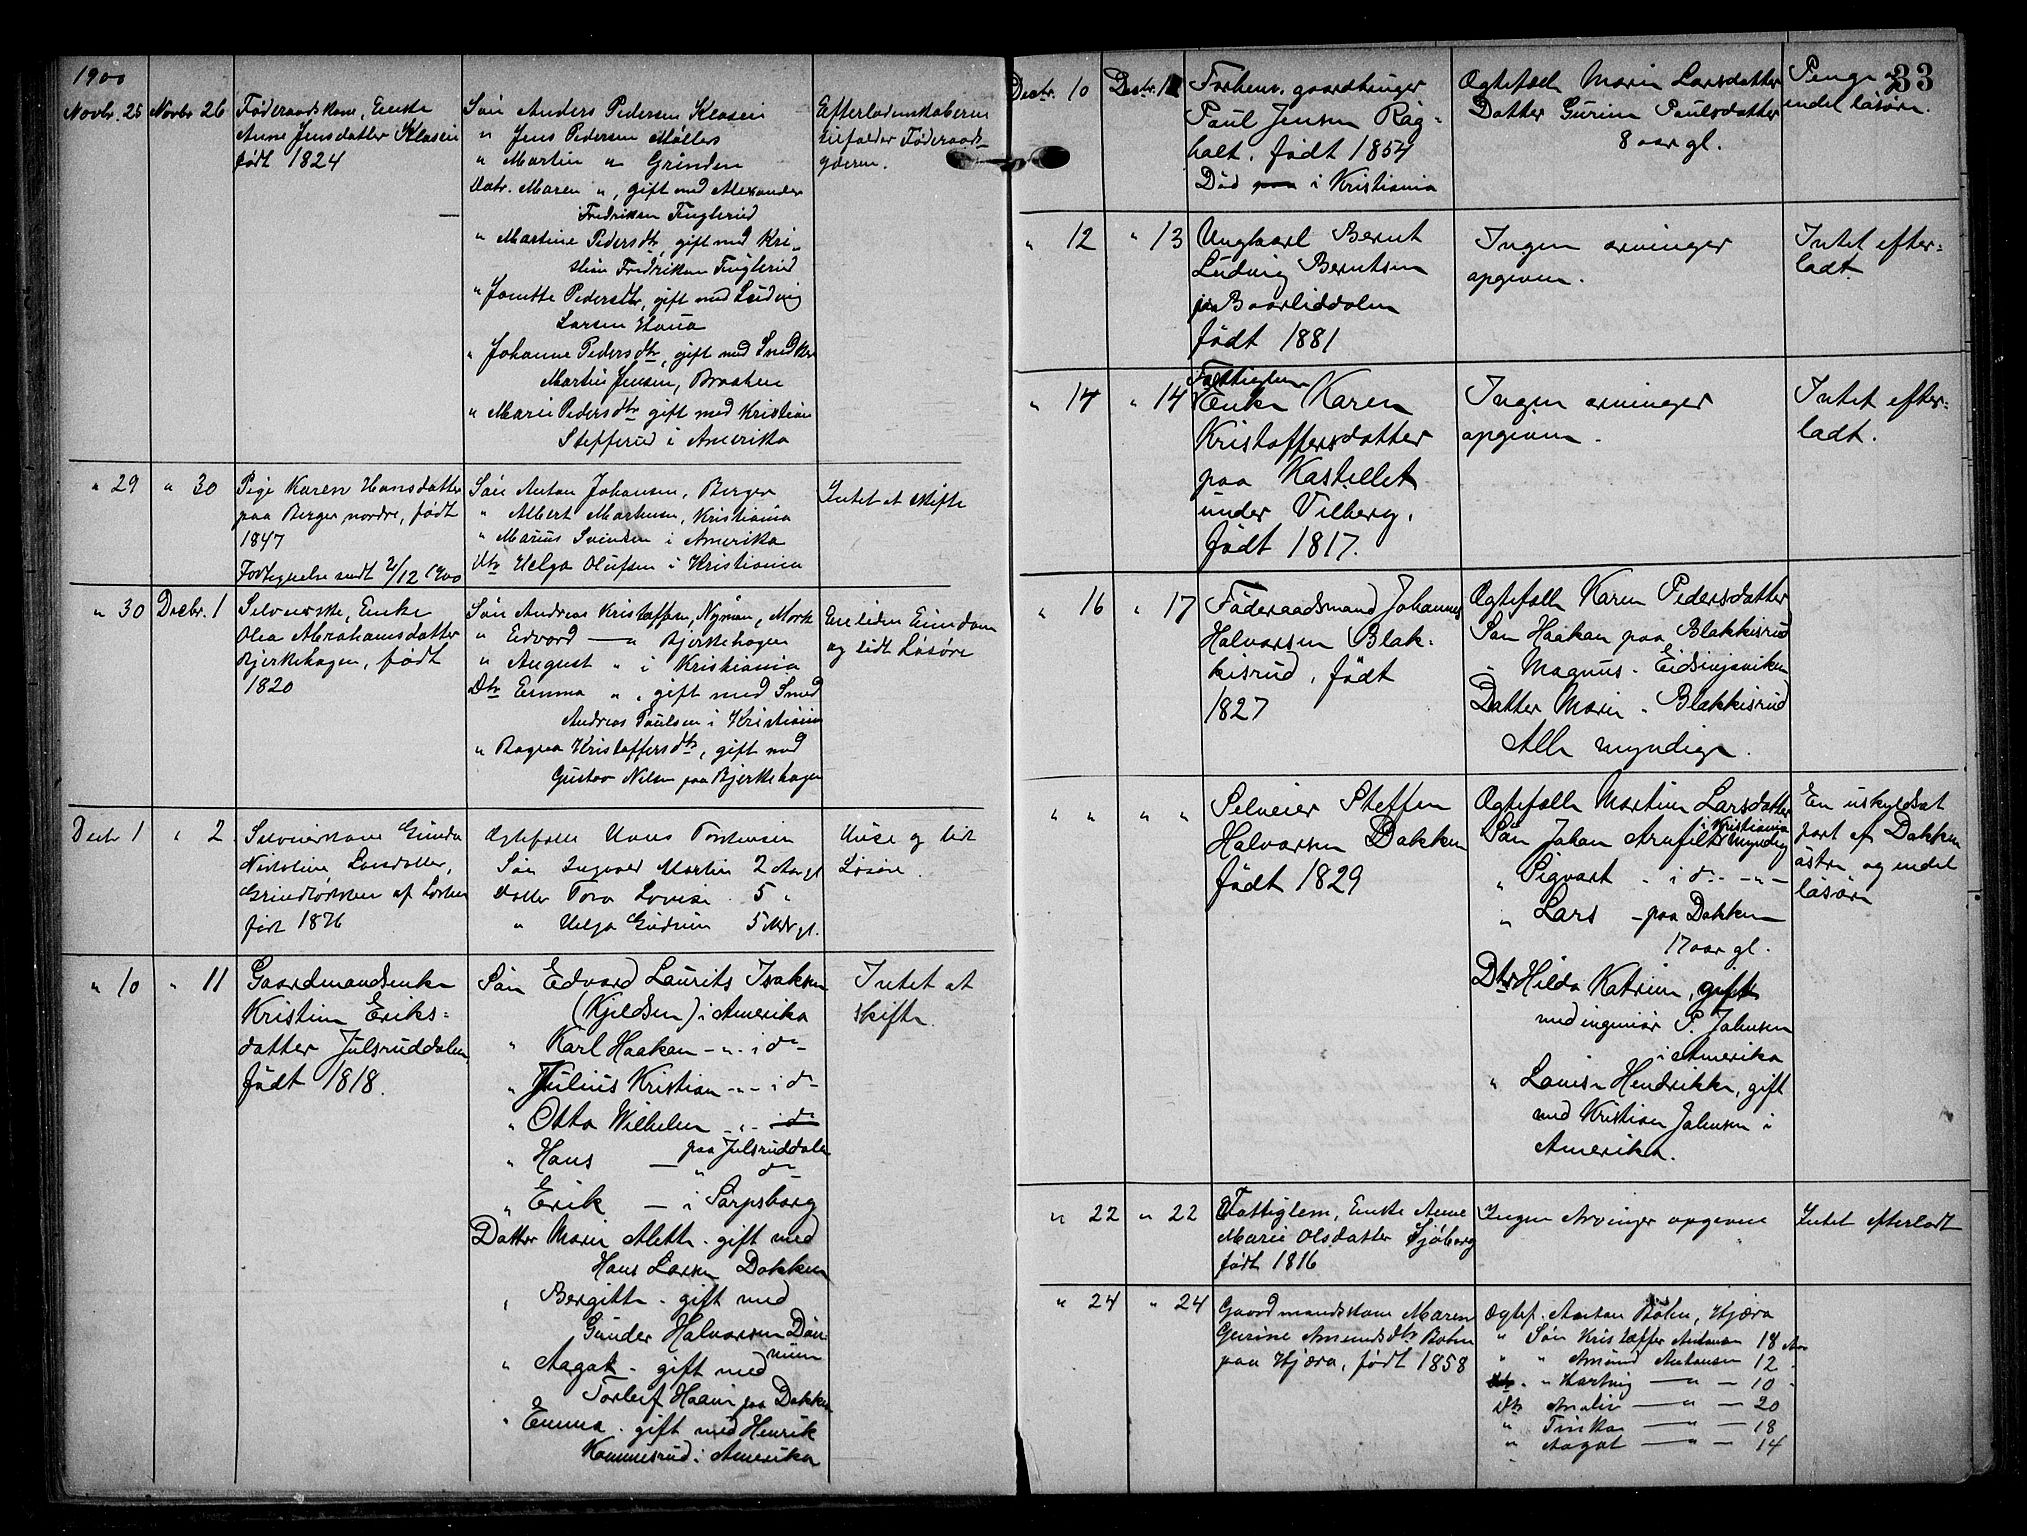 1900
Novbr. 25 Novbr 26 Føderaadskone, Enke
Anne Jensdatter Klasein
født 1824
Søn Anders Pedersen Klasein
" Jens Pedersen Møllers
" Martin " Grinden
Datr. Maren ", gift med Alexander
Fredriksen Tinglerud
" Martine Pedersdtr, gift med Kri-
stian Fredriksen Tinglerud
" Jonette Pedersdtr, gift med Ludvig
Larsen Haua
" Johanne Pedersdtr, gift med Snedker
Martin Jensen, Braaten
" Marie Pedersdtr gift med Kristian
Stefferud i Amerika
Efterladenskaberne
tilfalder Føderaads-
yderen.
" 29 " 30 Pige Karen Hansdatter
paa Berger nordre, født
1847
Fortegnelse sendt 2/12 1900
Søn Anton Johansen, Berger
" Albert Martinsen, Kristiania
" Marius Svendsen i Amerika
Dtr Helga Olufsen i Kristiania
Intet at skifte
" 30 Decbr. 1 Selveierske, Enke
Olea Abrahamsdatter
Bjerkehagen, født
1820
Søn Andreas Kristoffersen, Nymoen, Mork
" Edvard — " Bjerkehagen
" August " i Kristiania
Dtr Emma ", gift med Smed
Andreas Paulsen i Kristiania
" Ragna Kristoffersdtr, gift med
Gustav Nilsen paa Bjerkehagen
En liden Eiendom
og lidt Løsøre
Decbr 1 " 2 Selveierkone Gunda
Nikoline Larsdatter,
født 1876
Ægtefælle Hans Torstensen
Søn Ingvar Martin 2 Aar gl
Datter Tora Lovise 5 "
" Helga Gudrun 5 Mdr gl.
Huse og lidt
Løsøre.
" 10 " 11 Gaardmandsenke
Kristine Eriks-
datter Julsruddalen,
født 1818.
Søn Edvard Laurits Isaksen
(Kjeldsen) i Amerika
" Karl Haakon - " - i do
" Julius Kristian - " - i do
" Otto Wilhelm - " - i do
paa Julsruddalen
" Hans — " do
" Erik — i Sarpsborg
Datter Marie Alette - gift med
Hans Larsen Dokken
" Bergitte - gift med
Gunder Halvorsen Døn-
num
" Aagot - gift med
Torleif Haave paa Dokken
" Emma - gift med Henrik
Kommesrud i Amerika
Intet at
skifte.
33
Decbr. 10 Decbr. 12 Forhenv. gaardbruger
Paul Jensen Rag-
holt. født 1854
Død paa i Kristiania
Ægtefælle Marie Larsdatter
Datter Gurine Paulsdatter
8 aar gl.
Penge og
endel løsøre.
" 12 " 13 Ungkarl Bernt
Ludvig Berntsen
paa Baarliddalen
født 1881
Ingen arvinger
opgiven.
Intet efter-
ladt.
" 14 " 14 Fattiglem
Enke Karen
Kristoffersdatter
paa Kastellet
under Vilberg.
født 1817.
Ingen arvinger
opgiven.
Intet efter-
ladt.
" 16 " 17 Føderaadsmand Johannes
Halvorsen Blak-
kisrud, født
1827
Ægtefælle Karen Pedersdatter
Søn Haakon paa Blakkisrud
" Magnus - Eidsingsviken
Datter Marie - Blakkisrud
Alle myndige.
" " " " Selveier Steffen
Halvorsen Dokken
født 1829
Ægtefælle Martine Larsdatter
Søn Johan Arnfilt i Kristiania myndig
" Sigvart - i do - " -
" Lars - paa Dokken
17 aar gl.
Dtr Hilda Katrine, gift
med ingeniør P. Johnsen
i Amerika
" Louise Hendrikke, gift
med Kristian Johnsen i
Amerika.
En uskyldsat
part af Dokken
østre og endel
løsøre
" 22 " 22 Fattiglem, Enke Anne
Marie Olsdatter Sjøberg
født 1816
Ingen Arvinger opgivne
Intet efterladt
" 24 " 24 Gaardmandskone Maren
Gurine Amundsdtr Bøhn
paa Hjæra, født 1858
Ægtef. Anton Bøhn, Hjæra
" Søn Kristoffer Antonsen 18 Aar
" " Amund Antonsen 12 "
" " Hartvig — " — 10 "
Dtr Amalie — " — 20
" Tinka — " — 18
" Aagot — " — 14